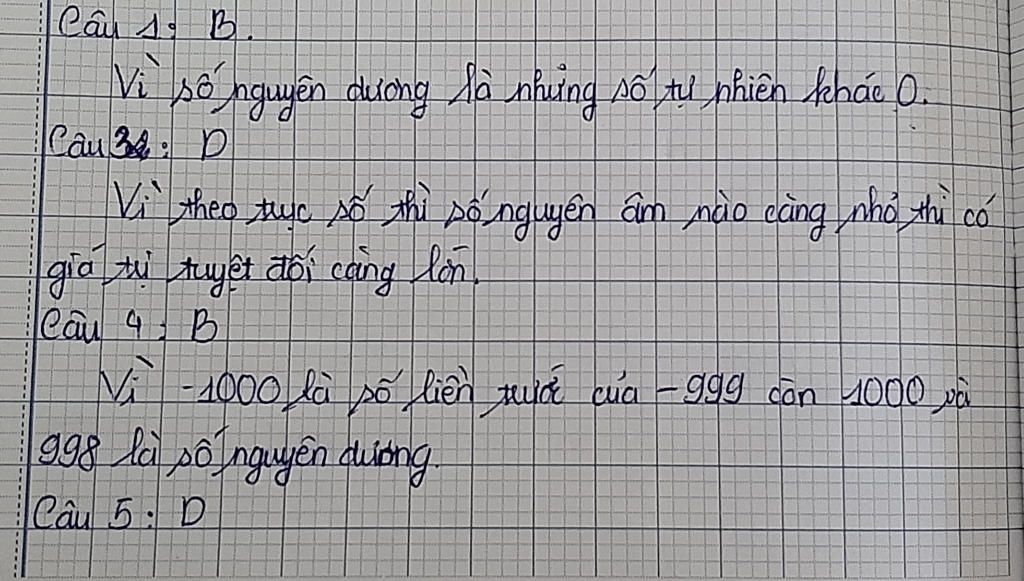 Câu 1: B.
Vì số nguyên dương là những số tự nhiên khác 0.
Câu 3: D
Vì theo trục số thì số nguyên âm nào càng nhỏ thì có
giá trị tuyệt đối càng lớn.
Câu 4: B
Vì -1000 là số liền trước của -999 còn 1000 và
998 là số nguyên dương.
Câu 5: D